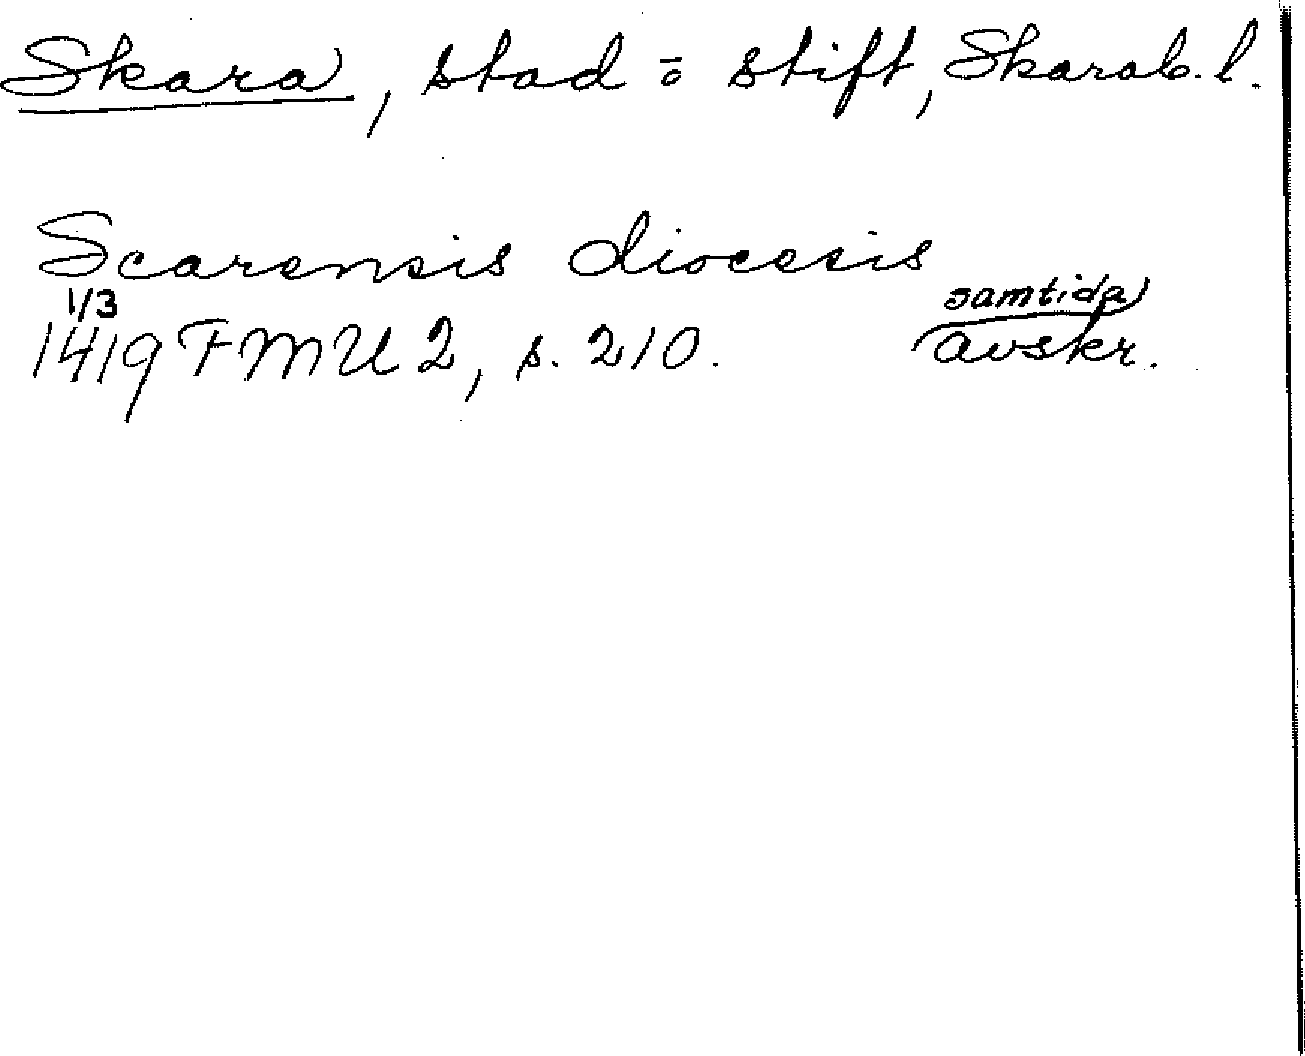 Skara, stad o stift, Skarab. l.
Scarensis diocesis
1/3 samtida
1419 FMU 2, s. 210. avskr.